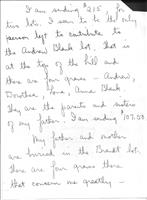 I am sending $215. for
two lots. I seem to be the only
person left to contribute to
the Andrew Blank lot. That is
at the top of the hill and
there are four graves - Andrew,
Dorothea, Lona, Anna Blank.
They are the parents and sisters
of my father. I am sending 107.50
My father and mother
are burried in the Brandt lot.
There are four graves there
that concern me greatly -